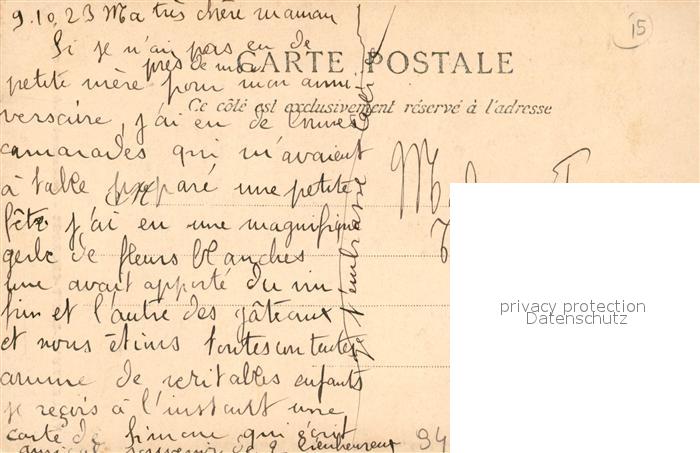 9.10.23 Ma très chère maman
Si je n'ai pas eu de
près de moi
petite mère pour mon anni
versaire, j'ai eu de bonnes
camarades qui m'avaient
à table préparé une petite
fête j'ai eu une magnifique
gerbe de fleurs blanches
une avait apporté du vin
fin et l'autre des gâteaux
et nous étions toutes contentes
comme de veritables enfants
je reçois à l'instant une
carte de Simone qui écrit
souvenir de
CARTE POSTALE
Ce côté est exclusivement réservé à l'adresse
je t'embrasse
15
94
privacy protection
Datenschutz